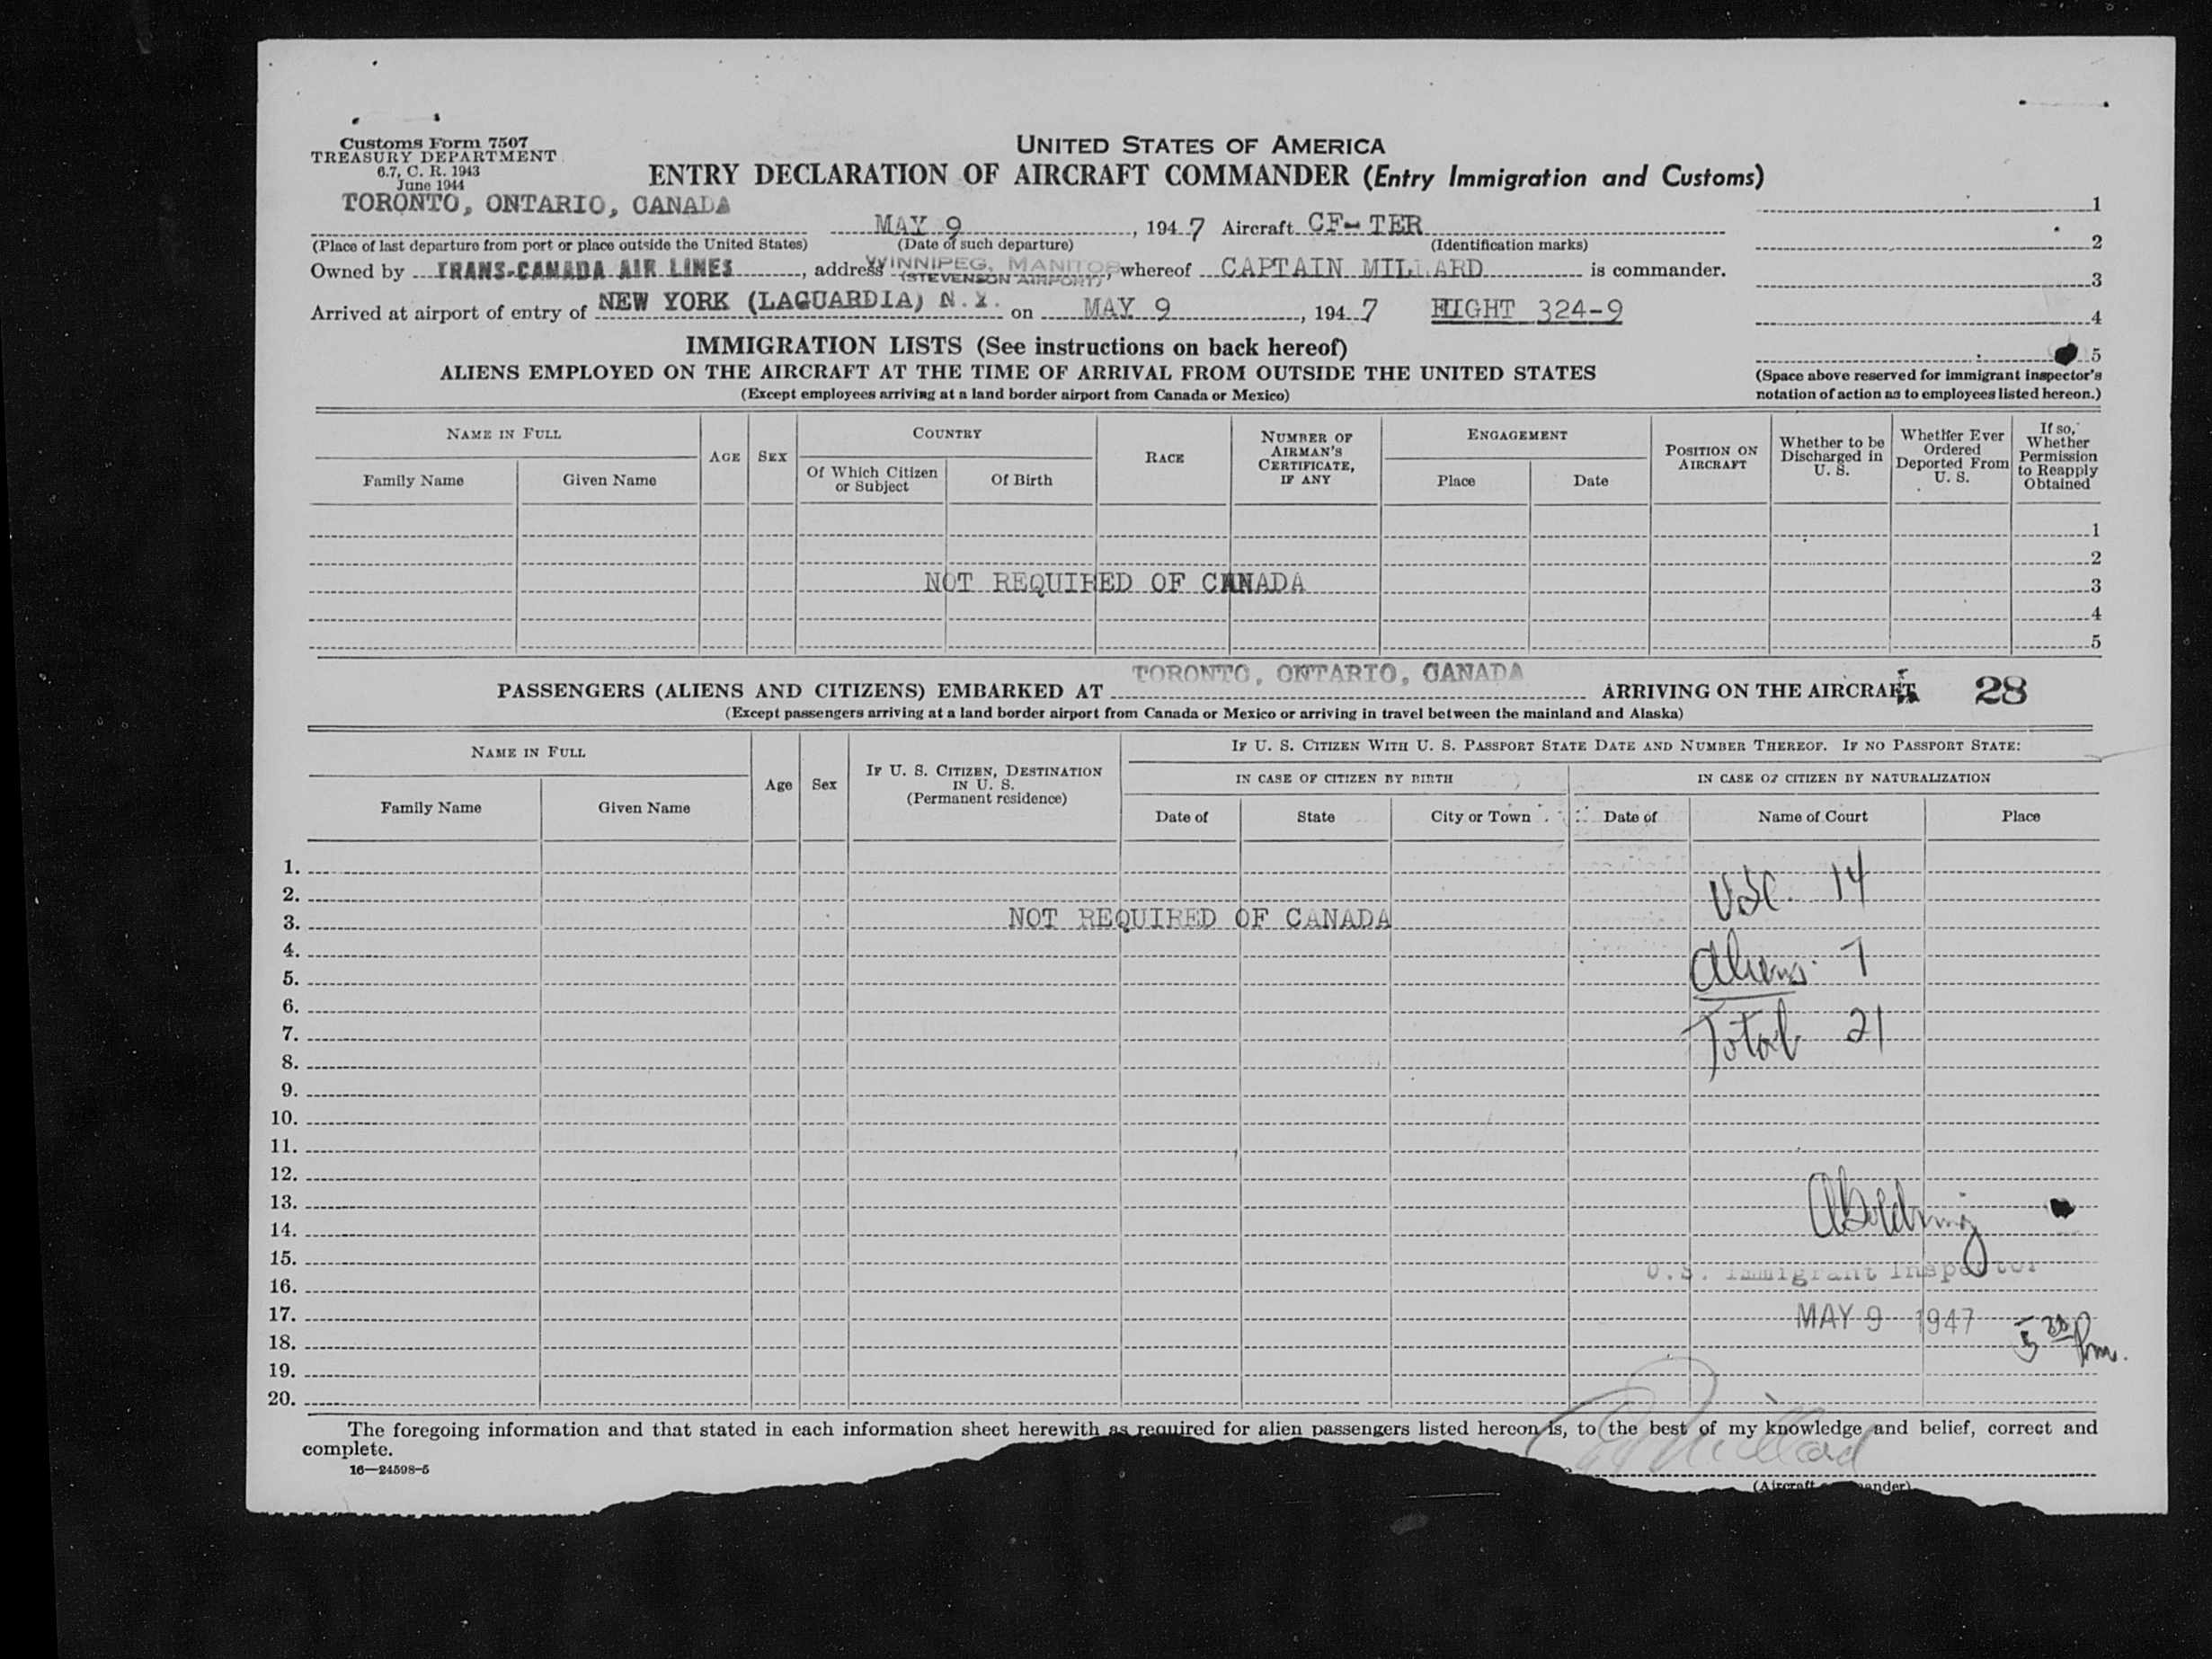 Customs Form 7507
TREASURY DEPARTMENT
6.7, C. R. 1943
June 1944
UNITED STATES OF AMERICA
ENTRY DECLARATION OF AIRCRAFT COMMANDER (Entry Immigration and Customs)
TORONTO, ONTARIO, CANADA MAY 9, 1947 Aircraft CF-TER
(Place of last departure from port or place outside the United States) (Date of such departure) (Identification marks)
Owned by TRANS-CANADA AIR LINES, address WINNIPEG, MANITOB (STEVENSON AIRPORT), whereof CAPTAIN MILLARD is commander.
Arrived at airport of entry of NEW YORK (LAGUARDIA) N.Y. on MAY 9, 1947 FLIGHT 324-9
1
2
3
4
5
(Space above reserved for immigrant inspector's
notation of action as to employees listed hereon.)
IMMIGRATION LISTS (See instructions on back hereof)
ALIENS EMPLOYED ON THE AIRCRAFT AT THE TIME OF ARRIVAL FROM OUTSIDE THE UNITED STATES
(Except employees arriving at a land border airport from Canada or Mexico)
NAME IN FULL
Family Name Given Name
AGE
SEX
COUNTRY
Of Which Citizen or Subject Of Birth
RACE
NUMBER OF AIRMAN'S CERTIFICATE, IF ANY
ENGAGEMENT
Place Date
POSITION ON AIRCRAFT
Whether to be Discharged in U. S.
Whether Ever Ordered Deported From U. S.
If so, Whether Permission to Reapply Obtained
1
2
NOT REQUIRED OF CANADA 3
4
5
PASSENGERS (ALIENS AND CITIZENS) EMBARKED AT TORONTO, ONTARIO, CANADA ARRIVING ON THE AIRCRAFT 28
(Except passengers arriving at a land border airport from Canada or Mexico or arriving in travel between the mainland and Alaska)
NAME IN FULL
Family Name Given Name
Age
Sex
IF U. S. CITIZEN, DESTINATION IN U. S. (Permanent residence)
IF U. S. CITIZEN WITH U. S. PASSPORT STATE DATE AND NUMBER THEREOF. IF NO PASSPORT STATE:
IN CASE OF CITIZEN BY BIRTH IN CASE OF CITIZEN BY NATURALIZATION
Date of State City or Town Date of Name of Court Place
1.
2. USC. 14
3. NOT REQUIRED OF CANADA
4. Aliens 7
5.
6.
7. Total 21
8.
9.
10.
11.
12.
13.
14.
15.
16. U.S. Immigrant Inspector
17. MAY 9 1947
18. pm.
19.
20.
The foregoing information and that stated in each information sheet herewith as required for alien passengers listed hereon is, to the best of my knowledge and belief, correct and
complete.
Millard
16—24598-5
(Aircraft